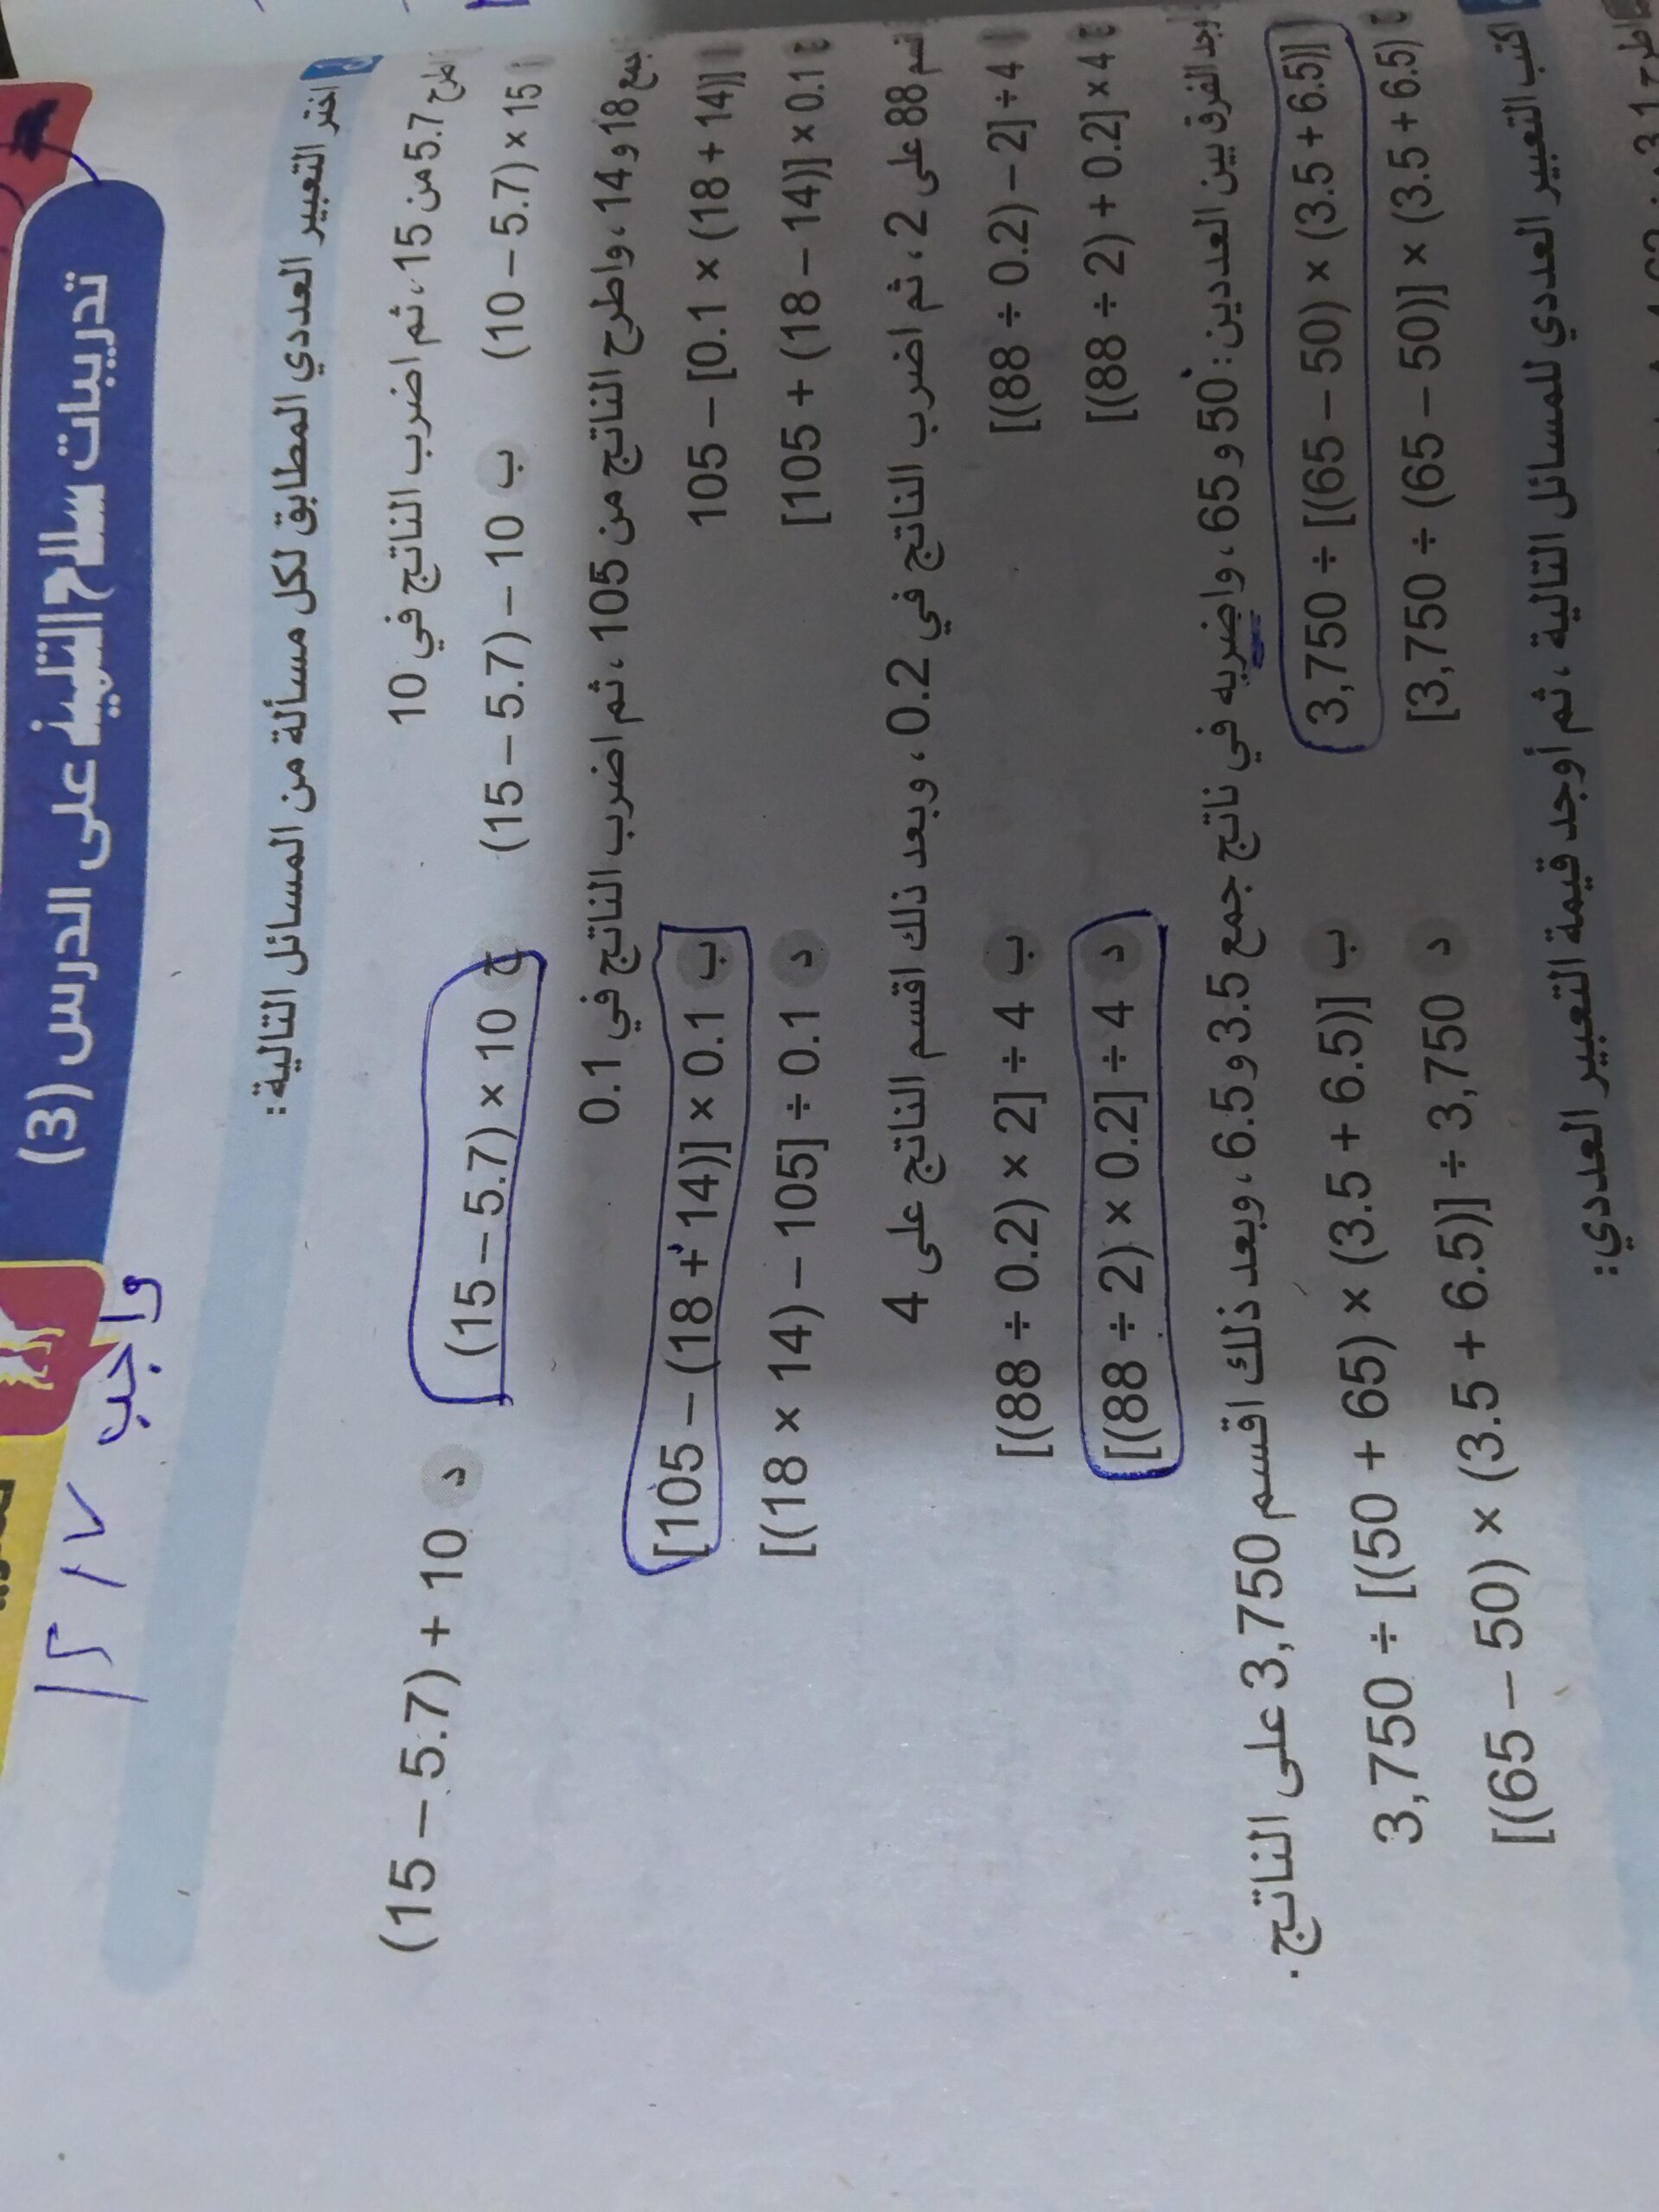 تدريبات سلاح التلميذ على الدرس (3)
واجب
اختر التعبير العددي المطابق لكل مسألة من المسائل التالية:
اطرح 5.7 من 15، ثم اضرب الناتج في 10
أ (10 – 5.7) × 15 ب (15 – 5.7) – 10 ج (15 – 5.7) × 10 د (15 – 5.7) + 10
اجمع 18 و 14، واطرح الناتج من 105، ثم اضرب الناتج في 0.1
أ 105 – [0.1 × (18 + 14)] ب [105 – (18 + 14)] × 0.1
ج [105 + (18 – 14)] × 0.1 د [(18 × 14) – 105] ÷ 0.1
اقسم 88 على 2، ثم اضرب الناتج في 0.2، وبعد ذلك اقسم الناتج على 4
أ [(88 ÷ 0.2) – 2] ÷ 4 ب [(88 ÷ 0.2) × 2] ÷ 4
ج [(88 ÷ 2) + 0.2] × 4 د [(88 ÷ 2) × 0.2] ÷ 4
أوجد الفرق بين العددين: 50 و 65، واضربه في ناتج جمع 3.5 و 6.5، وبعد ذلك اقسم 3,750 على الناتج.
أ 3,750 ÷ [(65 – 50) × (3.5 + 6.5)] ب 3,750 ÷ [(50 + 65) × (3.5 + 6.5)]
ج [3,750 ÷ (65 – 50)] × (3.5 + 6.5) د [(65 – 50) × (3.5 + 6.5)] ÷ 3,750
اكتب التعبير العددي للمسائل التالية، ثم أوجد قيمة التعبير العددي: